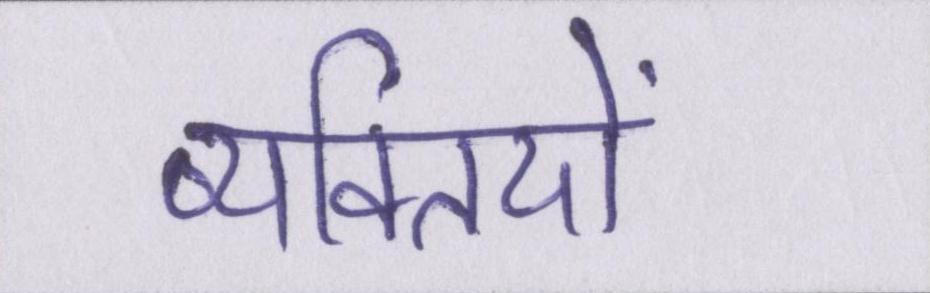 व्यक्तियों